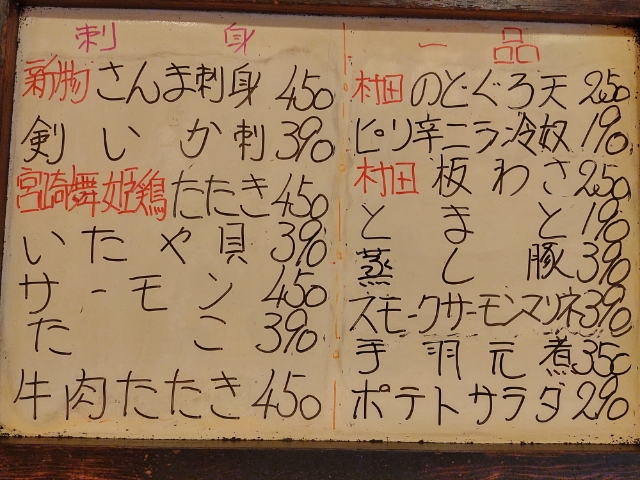 刺身
新物さんま刺身 450
剣いか刺 390
宮崎舞姫鶏たたき 450
いたや貝 390
サーモン 450
たこ 390
牛肉たたき 450
一品
村田のどぐろ天 250
ピリ辛ニラ冷奴 190
村田板わさ 250
とまと 190
蒸し豚 390
スモークサーモンマリネ 390
手羽元煮 350
ポテトサラダ 290